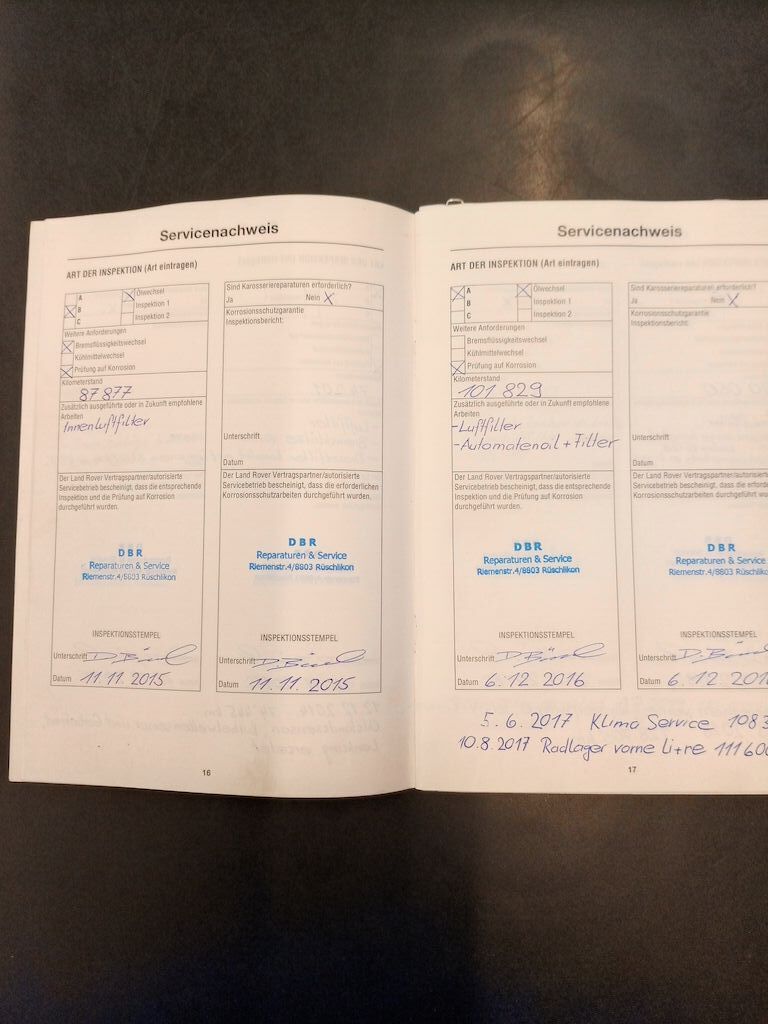 Servicenachweis
ART DER INSPEKTION (Art eintragen)
A
B
C
Ölwechsel
Inspektion 1
Inspektion 2
Weitere Anforderungen
Bremsflüssigkeitswechsel
Kühlmittelwechsel
Prüfung auf Korrosion
Kilometerstand
87 877
Zusätzlich ausgeführte oder in Zukunft empfohlene
Arbeiten
Innenluftfilter
Der Land Rover Vertragspartner/autorisierte
Servicebetrieb bescheinigt, dass die entsprechende
Inspektion und die Prüfung auf Korrosion
durchgeführt wurden.
DBR
Reparaturen & Service
Riemenstr.4/8803 Rüschlikon
INSPEKTIONSSTEMPEL
Unterschrift
Datum 11.11.2015
Sind Karosseriereparaturen erforderlich?
Ja Nein X
Korrosionsschutzgarantie
Inspektionsbericht:
Unterschrift
Datum
Der Land Rover Vertragspartner/autorisierte
Servicebetrieb bescheinigt, dass die erforderlichen
Korrosionsschutzarbeiten durchgeführt wurden.
DBR
Reparaturen & Service
Riemenstr.4/8803 Rüschlikon
INSPEKTIONSSTEMPEL
Unterschrift
Datum 11.11.2015
16
Servicenachweis
ART DER INSPEKTION (Art eintragen)
A
B
C
Ölwechsel
Inspektion 1
Inspektion 2
Weitere Anforderungen
Bremsflüssigkeitswechsel
Kühlmittelwechsel
Prüfung auf Korrosion
Kilometerstand
101 829
Zusätzlich ausgeführte oder in Zukunft empfohlene
Arbeiten
-Luftfilter
-Automatenoil + Filter
Der Land Rover Vertragspartner/autorisierte
Servicebetrieb bescheinigt, dass die entsprechende
Inspektion und die Prüfung auf Korrosion
durchgeführt wurden.
DBR
Reparaturen & Service
Riemenstr.4/8803 Rüschlikon
INSPEKTIONSSTEMPEL
Unterschrift
Datum 6.12.2016
Sind Karosseriereparaturen erforderlich?
Ja Nein X
Korrosionsschutzgarantie
Inspektionsbericht:
Unterschrift
Datum
Der Land Rover Vertragspartner/autoris
Servicebetrieb bescheinigt, dass die erforde
Korrosionsschutzarbeiten durchgeführt wu
DBR
Reparaturen & Service
Riemenstr.4/8803 Rüschlikon
INSPEKTIONSSTEMPEL
Unterschrift
Datum 6.12.201
5.6.2017 Klima Service 1083
10.8.2017 Radlager vorne li+re 11160
17